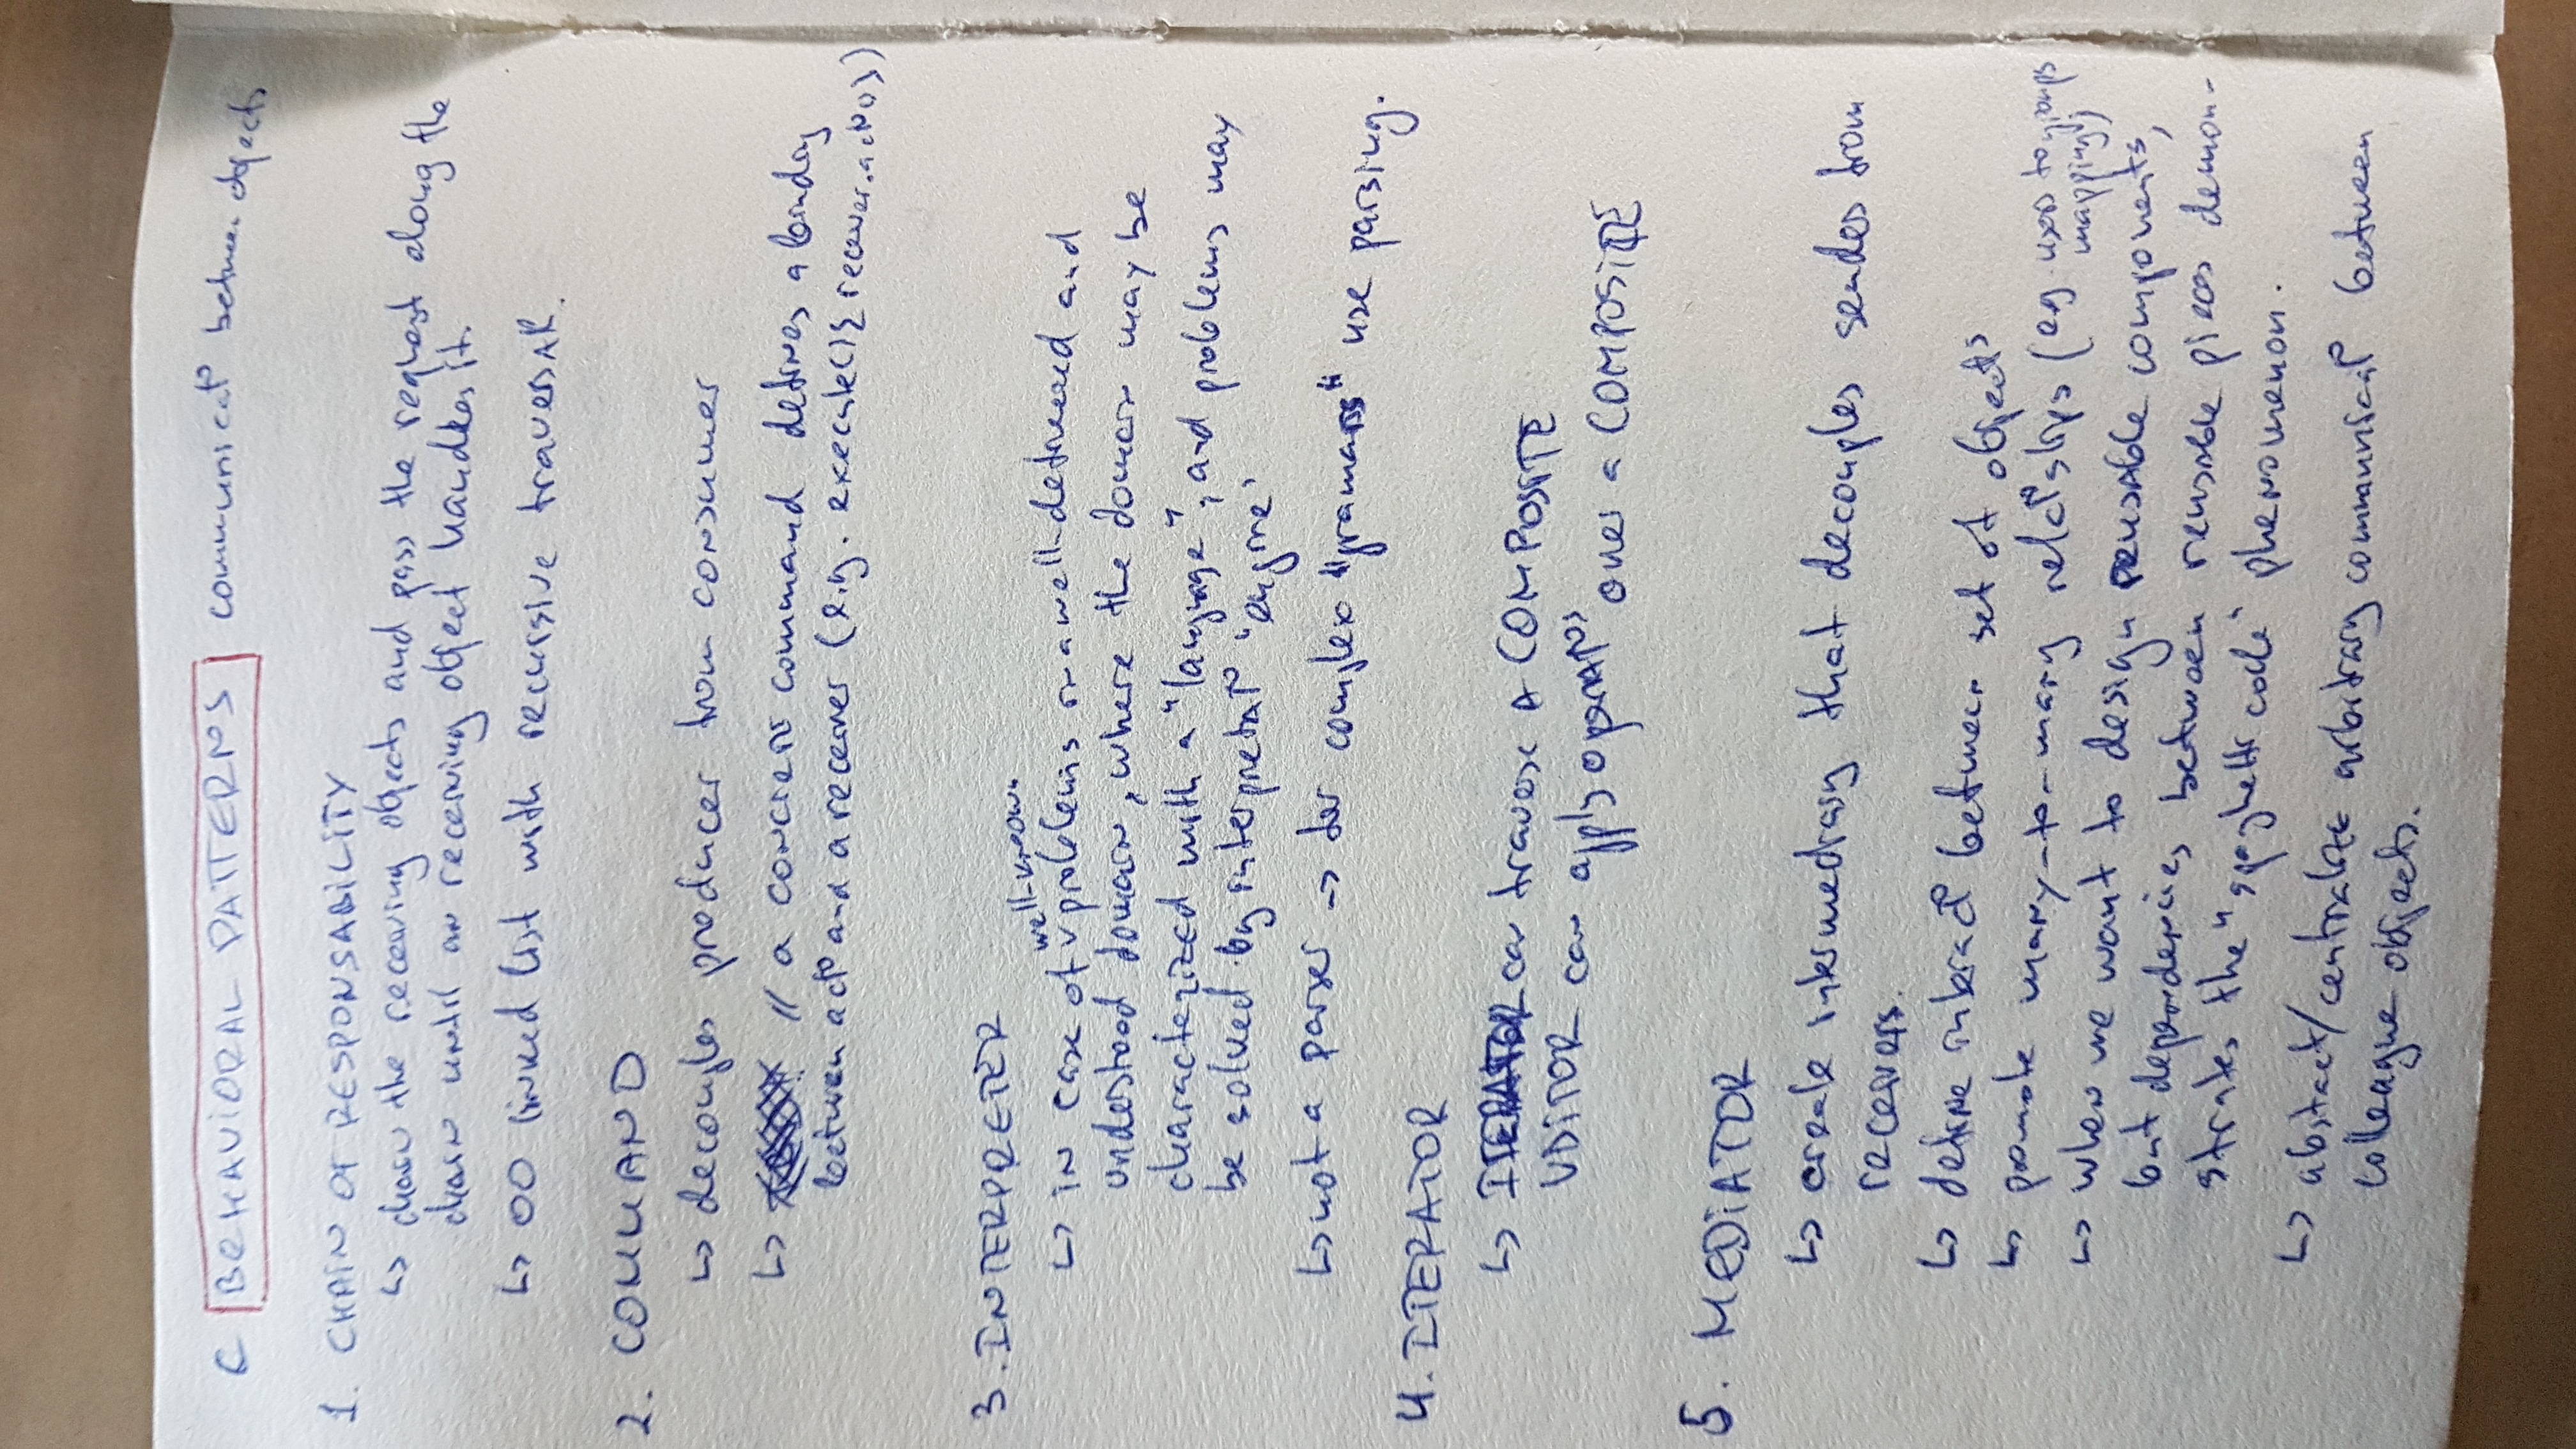 C BEHAVIORAL PATTERNS communicatº between objects
1. CHAIN OF RESPONSABILITY
↳ chain the receiving objects and pass the request along the
chain until an receiving object handles it.
↳ OO linked list with recursive traversal.
2. COMMAND
↳ decouples producer from consumer
↳ // a concrete command defines a binding
between actº and a receiver (e.g. execute(){ receiver.actº()})
3. INTERPRETER
well-known
↳ in case of ˅ problems in a well-defined and
understood domain, where the domain may be
characterized with a "language", and problems may
be solved by interpretatº "engine"
↳ not a parser → for complex "gramars" use parsing.
4. ITERATOR
↳ ITERATOR can traverse A COMPOSITE
VISITOR can apply operatºs over a COMPOSITE
5. MEDIATOR
↳ create intermediary that decouples sendes from
receivers.
↳ define interactº between set of objects
↳ promote many-to-many relatºships (eg users to groups
mapping)
↳ when we want to design reusable components,
but dependencies between reusable pieces demon-
strates the "spaghetti code" phenomenon.
↳ abstact/centralize arbitrary communicatº between
colleague objects.